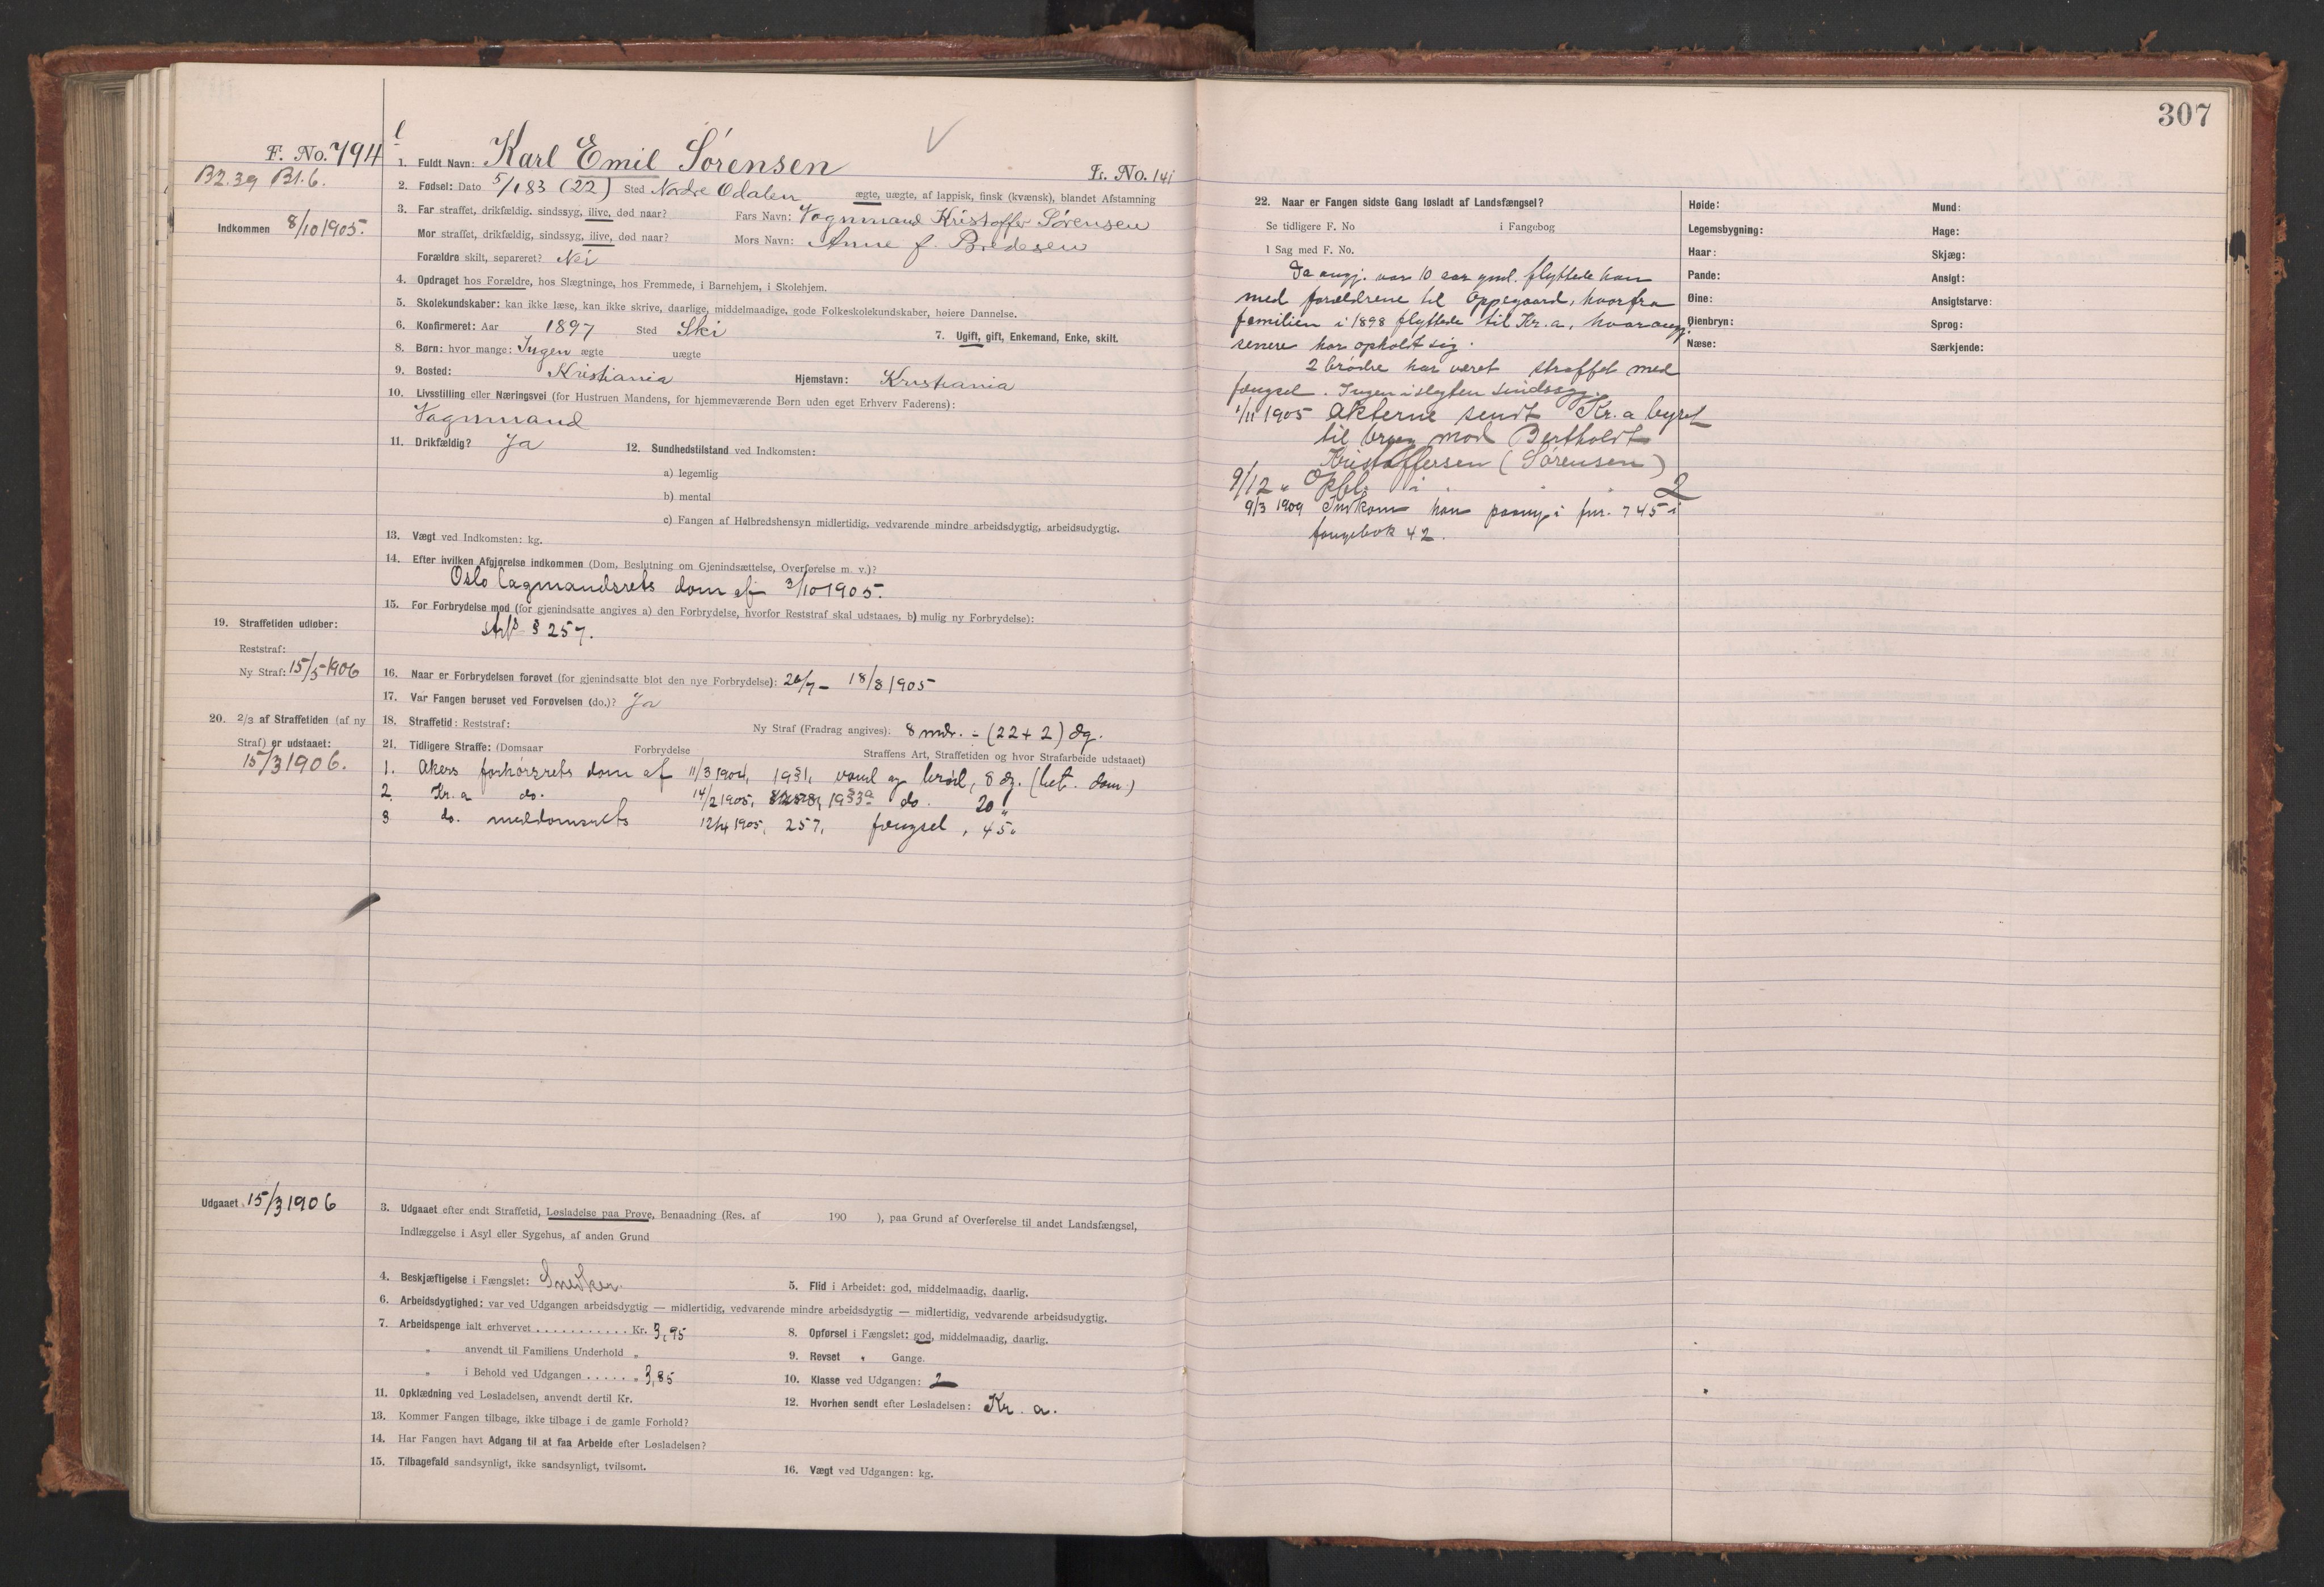 F. No. 794
B2.39 B1.6.
Indkommen 8/10 1905.
1. Fuldt Navn: Karl Emil Sørensen
Fr. No. 141
2. Fødsel: Dato 5/1 83 (22) Sted Nordre Odalen ægte, uægte, af lappisk, finsk (kvænsk), blandet Afstamning
3. Far straffet, drikfældig, sindssyg, ilive, død naar? Fars Navn: Vognmand Kristoffer Sørensen
Mor straffet, drikfældig, sindssyg, ilive, død naar? Mors Navn: Anne f. Bredesen
Forældre skilt, separeret? Nei
4. Opdraget hos Forældre, hos Slægtninge, hos Fremmede, i Barnehjem, i Skolehjem.
5. Skolekundskaber: kan ikke læse, kan ikke skrive, daarlige, middelmaadige, gode Folkeskolekundskaber, høiere Dannelse.
6. Konfirmeret: Aar 1897 Sted Ski
7. Ugift, gift, Enkemand, Enke, skilt.
8. Børn: hvor mange: Ingen ægte uægte
9. Bosted: Kristiania Hjemstavn: Kristiania
10. Livsstilling eller Næringsvei (for Hustruen Mandens, for hjemmeværende Børn uden eget Erhverv Faderens):
Vognmand
11. Drikfældig? Ja 12. Sundhedstilstand ved Indkomsten:
a) legemlig
b) mental
c) Fangen af Helbredshensyn midlertidig, vedvarende mindre arbeidsdygtig, arbeidsudygtig.
13. Vægt ved Indkomsten: kg.
14. Efter hvilken Afgjørelse indkommen (Dom, Beslutning om Gjenindsættelse, Overførelse m. v.)?
Oslo lagmandsrets dom af 3/10 1905.
15. For Forbrydelse mod (for gjenindsatte angives a) den Forbrydelse, hvorfor Reststraf skal udstaaes, b) mulig ny Forbrydelse):
§ 257.
19. Straffetiden udløber:
Reststraf:
Ny Straf: 15/5 1906
16. Naar er Forbrydelsen forøvet (for gjenindsatte blot den nye Forbrydelse): 26/7 – 18/8 1905
17. Var Fangen beruset ved Forøvelsen (do.)? Ja
20. 2/3 af Straffetiden (af ny
Straf) er udstaaet:
15/3 1906.
18. Straffetid: Reststraf: Ny Straf (Fradrag angives): 8 mdr. ÷ (22 + 2) dg.
21. Tidligere Straffe: (Domsaar Forbrydelse Straffens Art, Straffetiden og hvor Strafarbeide udstaaet)
1. Akers forhørsrets dom af 11/3 1904, vand og brød, 8 dg. (bet. dom)
2. Kr.a do. 14/2 1905, do. 20 "
3 do. meddomsrets 12/4 1905, 257, fængsel, 45 "
Udgaaet 15/3 1906
3. Udgaaet efter endt Straffetid, Løsladelse paa Prøve, Benaadning (Res. af 190 ), paa Grund af Overførelse til andet Landsfængsel,
Indlæggelse i Asyl eller Sygehus, af anden Grund
4. Beskjæftigelse i Fængslet: Snedker
5. Flid i Arbeidet: god, middelmaadig, daarlig.
6. Arbeidsdygtighed: var ved Udgangen arbeidsdygtig — midlertidig, vedvarende mindre arbeidsdygtig — midlertidig, vedvarende arbeidsudygtig.
7. Arbeidspenge ialt erhvervet . . . . . . . . . . . Kr. 3,95
8. Opførsel i Fængslet: god, middelmaadig, daarlig.
" anvendt til Familiens Underhold "
9. Revset " Gange.
" i Behold ved Udgangen . . . . . . " 3,85
10. Klasse ved Udgangen: 2
11. Opklædning ved Løsladelsen, anvendt dertil Kr.
12. Hvorhen sendt efter Løsladelsen: Kr. a.
13. Kommer Fangen tilbage, ikke tilbage i de gamle Forhold?
14. Har Fangen havt Adgang til at faa Arbeide efter Løsladelsen?
15. Tilbagefald sandsynligt, ikke sandsynligt, tvilsomt.
16. Vægt ved Udgangen: kg.
307
22. Naar er Fangen sidste Gang løsladt af Landsfængsel?
Se tidligere F. No i Fangebog
I Sag med F. No.
Da angj. var 10 aar gml. flyttede han
med forældrene til Oppegaard, hvorfra
familien i 1898 flyttede til Kr.a, hvor angj.
senere har opholdt sig.
2 brødre har været straffet med
fængsel. Ingen i slegten sindssyg.
1/11 1905 Akterne sendt Kr.a byret
til brug mod Berthold
Kristoffersen (Sørensen)
9/12 " Opfl. i 2
9/3 1909 Indkom han paany i fnr. 745 i
fangebok 42.
Høide:
Legemsbygning:
Haar:
Pande:
Øine:
Øienbryn:
Næse:
Mund:
Hage:
Skjæg:
Ansigt:
Ansigtsfarve:
Sprog:
Særkjende: